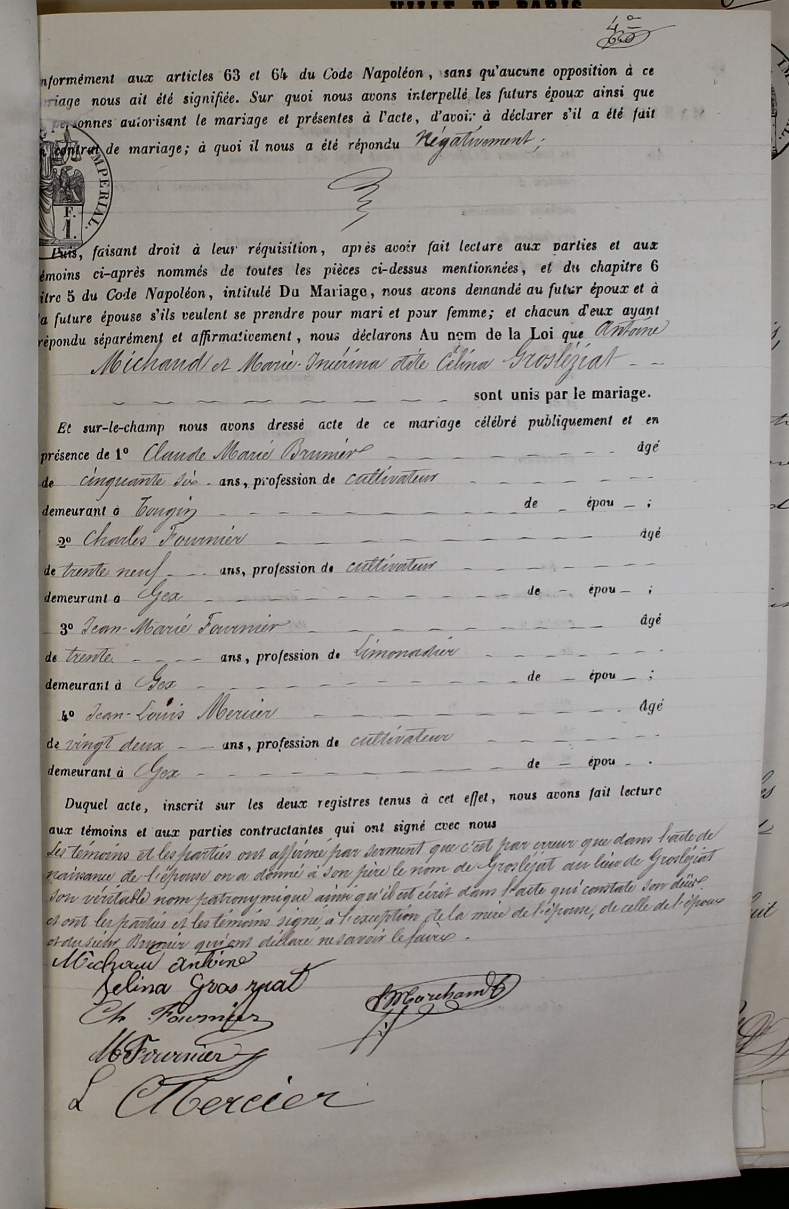 VILLE DE PARIS
4º
nformément aux articles 63 et 64 du Code Napoléon, sans qu'aucune opposition à ce
riage nous ait été signifiée. Sur quoi nous avons interpellé les futurs époux ainsi que
personnes autorisant le mariage et présentes à l'acte, d'avoir à déclarer s'il a été fait
contrat de mariage; à quoi il nous a été répondu Négativement;
IMPERIAL.
F.
1.
Puis, faisant droit à leur réquisition, après avoir fait lecture aux parties et aux
émoins ci-après nommés de toutes les pièces ci-dessus mentionnées, et du chapitre 6
itre 5 du Code Napoléon, intitulé Du Mariage, nous avons demandé au futur époux et à
a future épouse s'ils veulent se prendre pour mari et pour femme; et chacun d'eux ayant
répondu séparément et affirmativement, nous déclarons Au nom de la Loi que Antoine
Michaud et Marie dite Célina Grosléziat
sont unis par le mariage.
Et sur-le-champ nous avons dressé acte de ce mariage célébré publiquement et en
présence de 1º Claude Marie Brunier âgé
de cinquante six ans, profession de cultivateur
demeurant à Tougin de épou ;
2º Charles Fournier âgé
de trente neuf ans, profession de cultivateur
demeurant à Gex de épou ;
3º Jean-Marie Fournier âgé
de trente ans, profession de Limonadier
demeurant à Gex de épou ;
4º Jean-Louis Mercier âgé
de vingt deux ans, profession de cultivateur
demeurant à Gex de épou .
Duquel acte, inscrit sur les deux registres tenus à cet effet, nous avons fait lecture
aux témoins et aux parties contractantes qui ont signé avec nous
Les témoins et les parties ont affirmé par serment que c'est par erreur que dans l'acte de
naissance de l'épouse on a donné à son père le nom de Grosléjat au lieu de Grosléziat
son véritable nom patronymique ainsi qu'il est écrit dans l'acte qui constate son décès.
et ont les parties et les témoins signé, à l'exception de la mère de l'épouse, de celle de l'époux
et du sieur Brunier qui ont déclaré ne savoir le faire.
Michaud Antoine
Célina Grosziat
Ch Fournier
Marchand
M Fournier
L Mercier